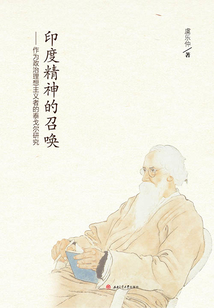 印度精神的召唤
——作为政治理想主义者的泰戈尔研究
虞乐仲
著